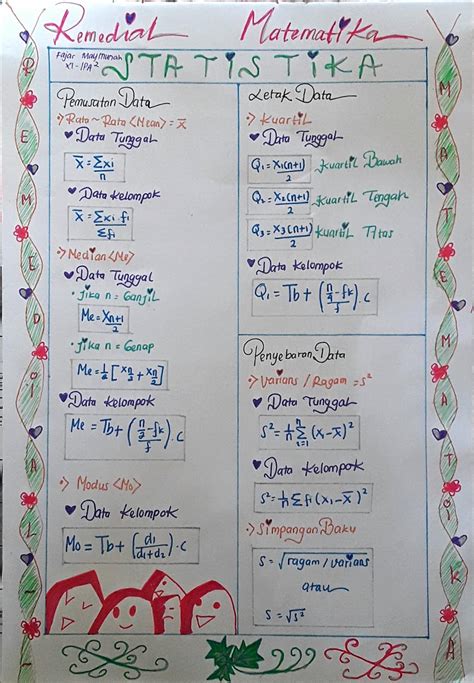 Remedial Matematika
Fajar Maymunah
XI-IPA 2
STATISTIKA
Pemusatan Data
→ Rata ~ Rata <Mean> = x̄
Data Tunggal
x̄ = Σxi / n
Data Kelompok
x̄ = Σxi . fi / Σfi
→ Median <Me>
Data Tunggal
• Jika n = Ganjil
Me = Xn+1 / 2
• Jika n = Genap
Me = 1/2 [Xn/2 + Xn/2]
Data Kelompok
Me = Tb + (n/2 - fk / f) . c
→ Modus <Mo>
Data Kelompok
Mo = Tb + (d1 / d1+d2) . c
Letak Data
→ Kuartil
Data Tunggal
Q1 = X1(n+1) / 2 Kuartil Bawah
Q2 = X2(n+1) / 2 Kuartil Tengah
Q3 = X3(n+1) / 2 Kuartil Atas
Data Kelompok
Penyebaran Data
→ Varians / Ragam = S²
Data Tunggal
S² = 1/n Σ i=1 n (xi - x̄)²
Data Kelompok
S² = 1/n Σ fi (xi - x̄)²
→ Simpangan Baku
S = √ragam / varians
atau
S = √S²
REMEDIAL